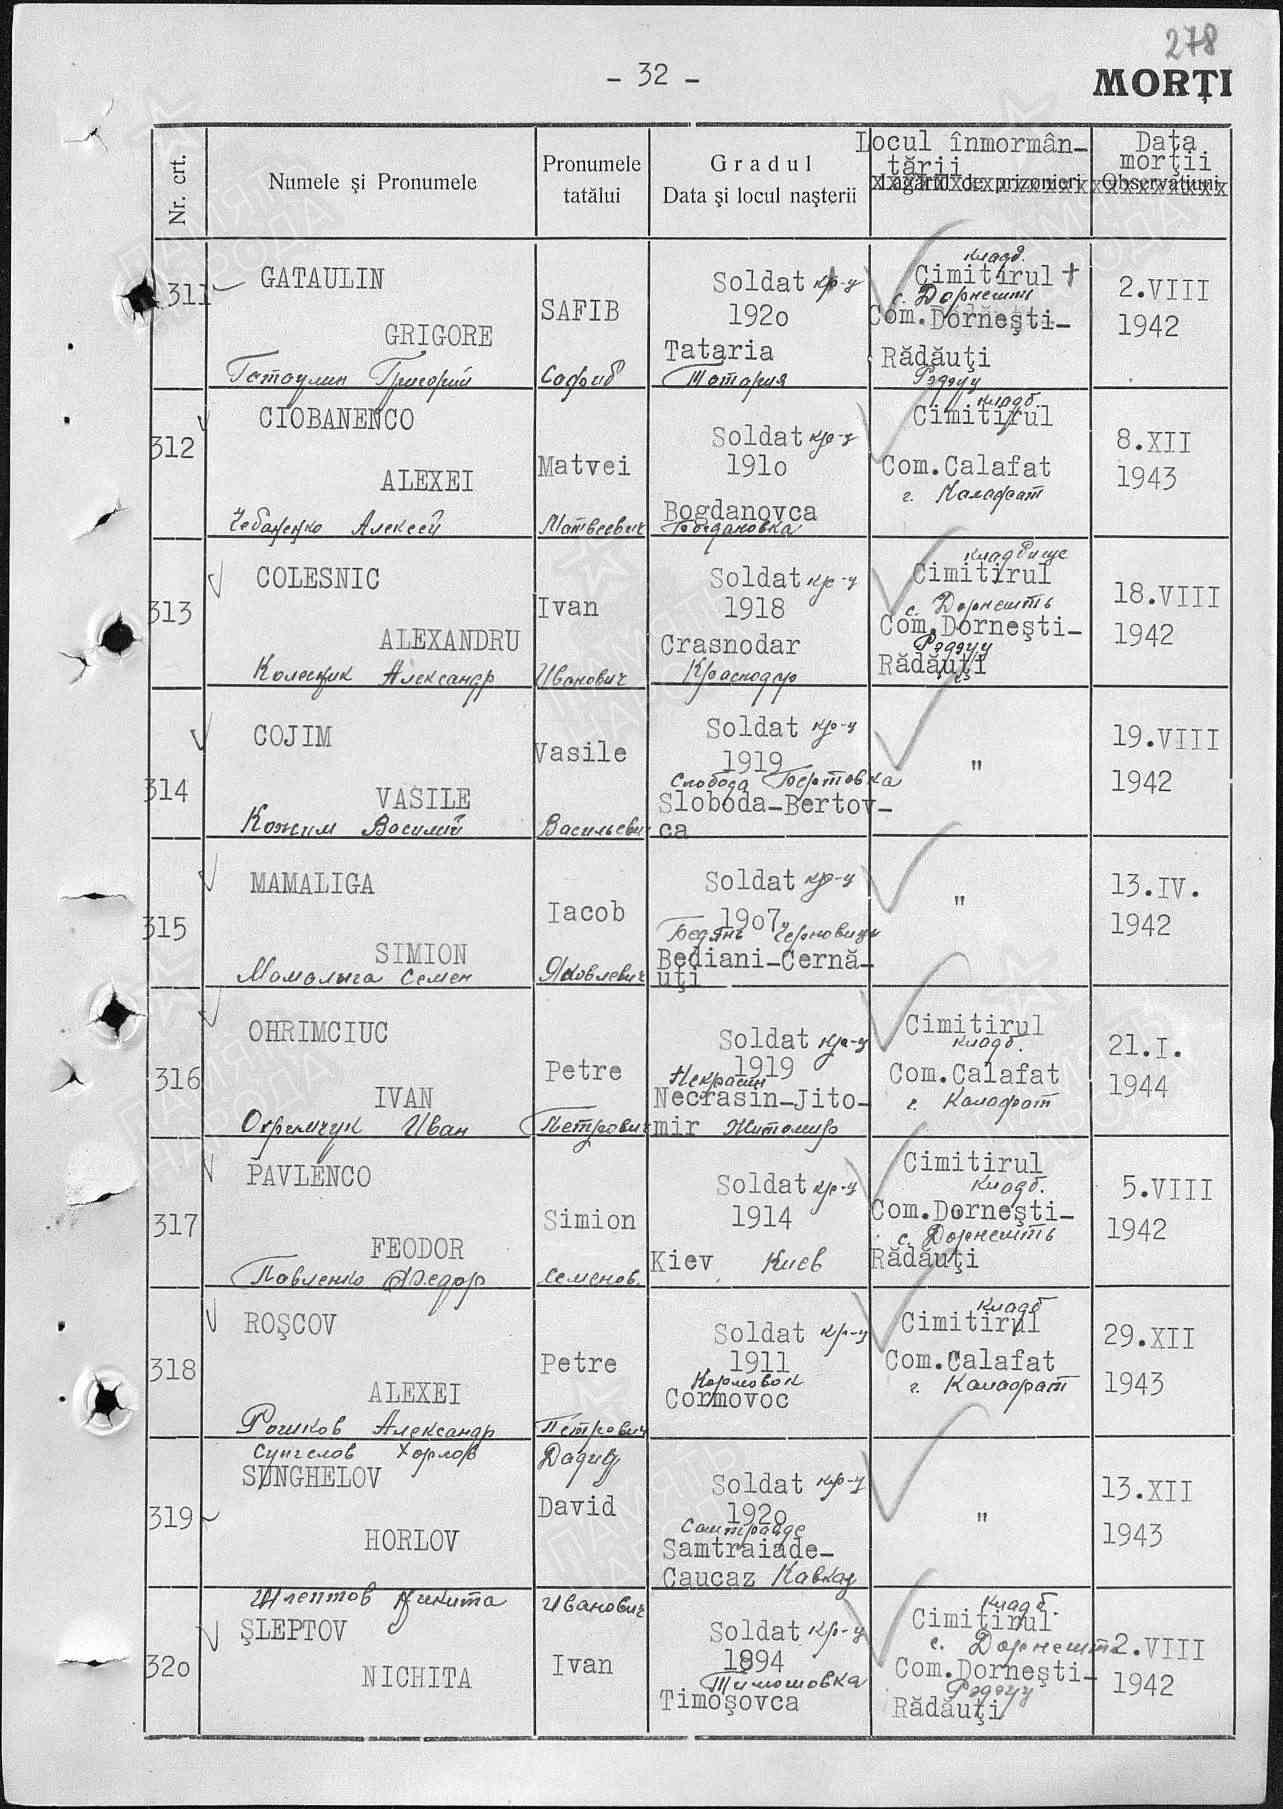 278
- 32 -
MORŢI
Nr. crt.
Numele şi Pronumele
Pronumele tatălui
Gradul
Data şi locul naşterii
Locul înmormân-
tării
Lagărul de prizonieri
Data
morţii
Observaţiuni
311
GATAULIN
GRIGORE
Гатаулин Григорий
SAFIB
Сафиб
Soldat кр-ц
192o
Tataria
Татария
кладб.
Cimitirul +
с. Дорнешть
Com.Dorneşti-
Rădăuţi
Рэдэуц
2.VIII
1942
312
CIOBANENCO
ALEXEI
Чебаненко Алексей
Matvei
Матвеевич
Soldat кр-ц
191o
Bogdanovca
Богдановка
кладб.
Cimitirul
Com.Calafat
г. Калафат
8.XII
1943
313
COLESNIC
ALEXANDRU
Колесник Александр
Ivan
Иванович
Soldat кр-ц
1918
Crasnodar
Краснодар
кладбище
Cimitirul
с. Дорнешть
Com.Dorneşti-
Рэдэуц
Rădăuţi
18.VIII
1942
314
COJIM
VASILE
Кожим Василий
Vasile
Васильевич
Soldat кр-ц
1919
Слобода Бертовка
Sloboda-Bertov-
ca
"
19.VIII
1942
315
MAMALIGA
SIMION
Мамалыга Семен
Iacob
Яковлевич
Soldat кр-ц
19o7
Бедянь Черновицы
Bediani-Cernă-
uţi
"
13.IV.
1942
316
OHRIMCIUC
IVAN
Охремчук Иван
Petre
Петрович
Soldat кр-ц
1919
Некрасин
Necrasin-Jito-
mir Житомир
Cimitirul
кладб.
Com.Calafat
г. Калафат
21.I.
1944
317
PAVLENCO
FEODOR
Павленко Федор
Simion
Семенов.
Soldat кр-ц
1914
Kiev Киев
Cimitirul
Кладб.
Com.Dorneşti-
с. Дорнешть
Rădăuţi
5.VIII
1942
318
ROŞCOV
ALEXEI
Рошков Александр
Petre
Петрович
Soldat кр-ц
1911
Кормовок
Cormovoc
Кладб
Cimitirul
Com.Calafat
г. Калафат
29.XII
1943
319
Сунгелов Хорлов
SUNGHELOV
HORLOV
Давид
David
Soldat кр-ц
192o
Самтраиде
Samtraiade-
Caucaz Кавказ
"
13.XII
1943
32o
Шлептов Никита
ŞLEPTOV
NICHITA
Иванович
Ivan
Soldat кр-ц
1894
Тимошовка
Timoşovca
Кладб.
Cimitirul
с. Дорнешть
Com.Dorneşti-
Рэдэуц
Rădăuţi
2.VIII
1942